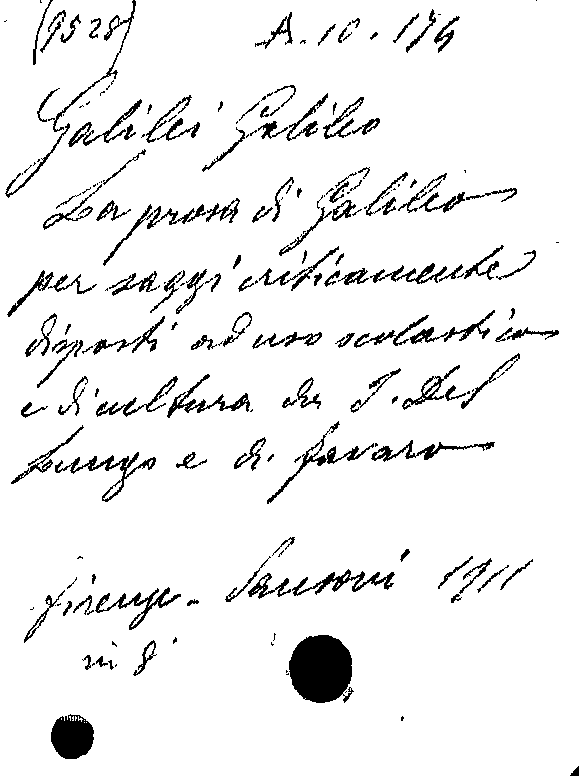 (9528) A.10.174
Galilei Galileo
La prosa di Galileo
per saggi criticamente
disposti ad uso scolastico
e di cultura da I. Del
Lungo e A. Favaro
Firenze - Sansoni 1911
in 8°